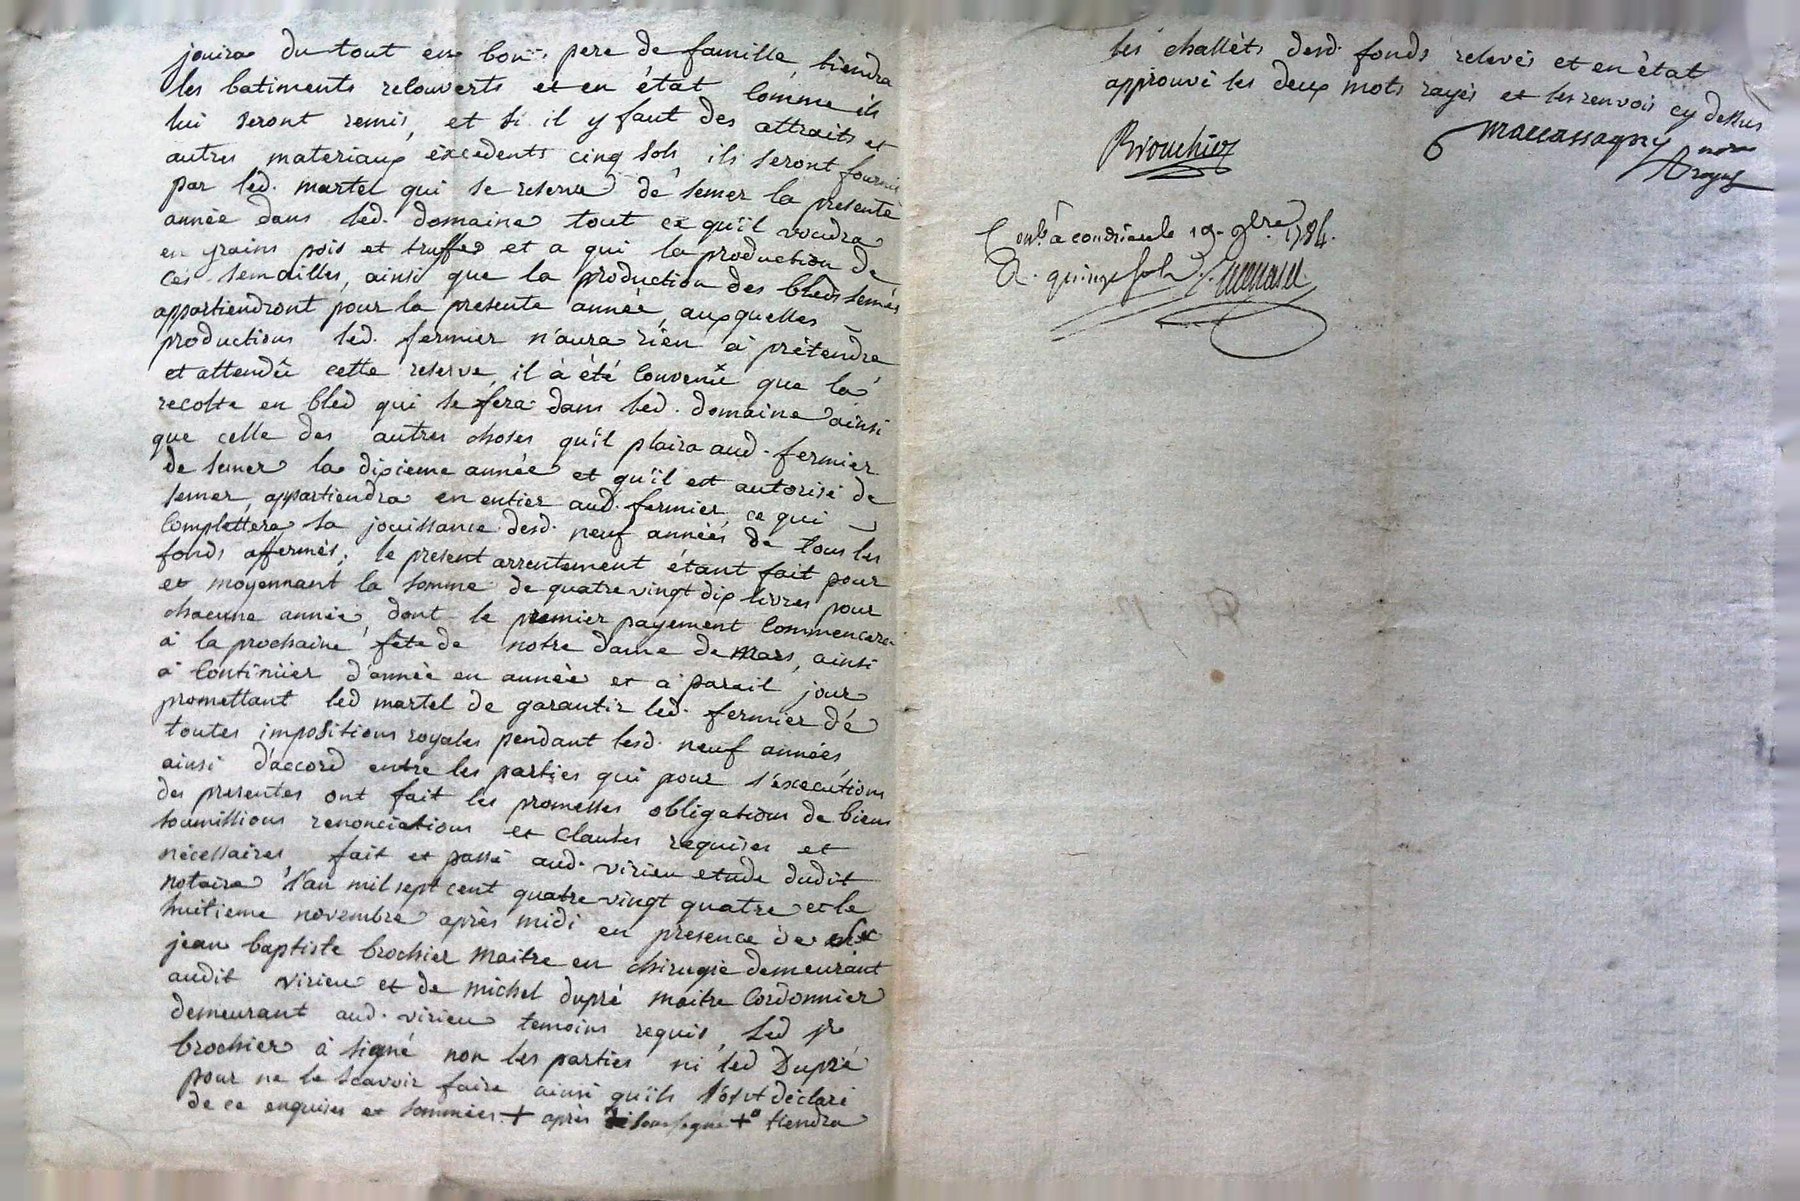 jouira du tout en bon pere de famille, tiendra
les batiments relouverts et en état comme ils
lui seront remis, et si il y faut des attraits et
autres materiaux éxcedents cinq sols, ils seront fournis
par led. martel qui se reserve de semer la presente
année dans led. domaine tout ce qu'il voudra
en grains pois et truffes et a qui la production de
ces semailles, ainsi que la production des bleds semés
appartiendront pour la presente année, auxquelles
productions led. fermier n'aura rien à prétendre
et attendû cette reserve, il à été convenû que la
recolte en bled qui se fera dans led. domaine ainsi
que celle des autres choses qu'il plaira aud. fermier
de semer la dixieme année et qu'il est autorisé de
semer, appartiendra en entier aud. fermier, ce qui
complettera sa jouissance desd. neuf années de tous les
fonds affermés; le present arrentement étant fait pour
et moyennant la somme de quatre vingt dix livres pour
chacune année, dont le premier payement commencera
à la prochaine fete de notre dame de mars, ainsi
à continüer d'année en année et à pareil jour
promettant led martel de garantir led. fermier de
toutes impositions royales pendant lesd. neuf années
ainsi d'accord entre les parties qui pour l'éxecutions
des presentes ont fait les promesses obligations de biens
soumissions renonciations et clauses requises et
nécessaires, fait et passé aud. virieu etude dudit
notaire l'an mil sept cent quatre vingt quatre et le
huitieme novembre après midi en presence de
jean baptiste brochier maitre en chirugie demeurant
audit virieu et de michel dupré maitre cordonnier
demeurant aud. virieu temoins requis, led sr
brochier à signé non les parties ni led Dupré
pour ne le scavoir faire ainsi qu'ils l'ont déclaré
de ce enquises et sommées + après + tiendra
les challéts desd. fonds relevés et en état
approuvé les deux mots rayés et les renvois cy dessus
Brouchier
maccassagny nore
royal
à condrieu le 19. 9bre 1784.
quinze sols